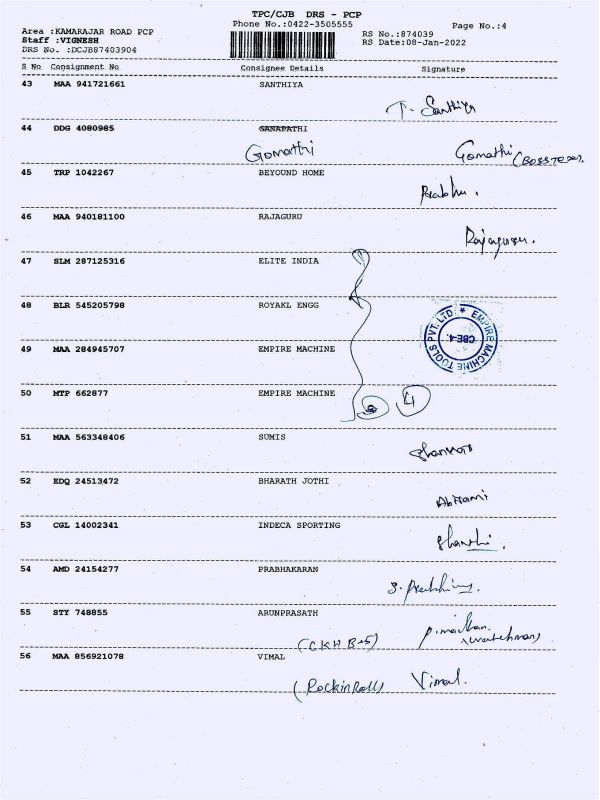 TPC/CJB DRS - PCP
Phone No.:0422-3505555
Page No.:4
Area :KAMARAJAR ROAD PCP
RS No.:874039
Staff :VIGNESH
RS Date:08-Jan-2022
DRS No. :DCJB87403904
S No Consignment No Consignee Details Signature
43 MAA 941721661 SANTHIYA
T. Santhiya
44 DDG 4080985 GANAPATHI
Gomathi Gomathi
45 TRP 1042267 BEYOUND HOME
Prabhu.
46 MAA 940181100 RAJAGURU
Rajaguru.
47 SLM 287125316 ELITE INDIA
48 BLR 545205798 ROYAKL ENGG
EMPIRE MACHINE TOOLS PVT. LTD. ★
CBE-4.
49 MAA 284945707 EMPIRE MACHINE
50 MTP 662877 EMPIRE MACHINE
4
51 MAA 563348406 SUMIS
52 EDQ 24513472 BHARATH JOTHI
Abirami
53 CGL 14002341 INDECA SPORTING
Shanthi.
54 AMD 24154277 PRABHAKARAN
55 STY 748855 ARUNPRASATH
(watchman)
56 MAA 856921078 VIMAL
(RockinRoll) Vimal.